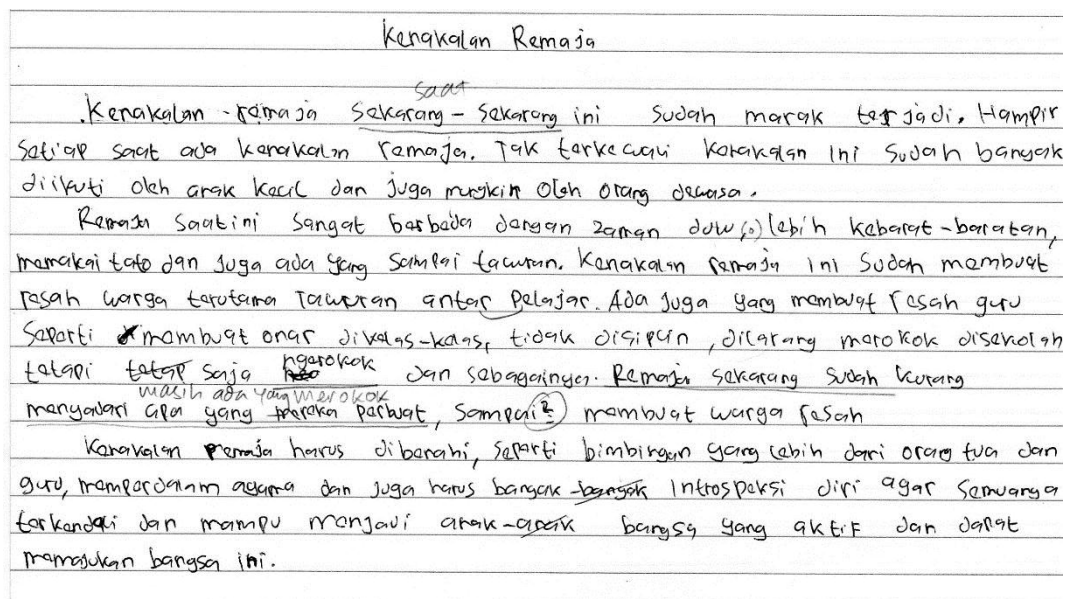 Kenakalan Remaja
saat
Kenakalan remaja sekarang - sekarang ini sudah marak terjadi. Hampir
Setiap saat ada kenakalan remaja. Tak terkecuali kenakalan ini sudah banyak
diikuti oleh anak kecil dan juga mungkin oleh orang dewasa.
Remaja saat ini sangat berbeda dengan zaman dulu (,) lebih kebarat-baratan,
memakai tato dan juga ada yang sampai tawuran. Kenakalan remaja ini sudah membuat
resah warga terutama Tawuran antar pelajar. Ada juga yang membuat resah guru
Seperti membuat onar dikelas-kelas, tidak disiplin, dilarang merokok disekolah
tetapi tetap saja ngerokok dan sebagainya. Remaja sekarang sudah kurang
masih ada yang merokok
menyadari apa yang mereka perbuat, sampai2 membuat warga resah
Kenakalan remaja harus dibenahi, seperti bimbingan yang lebih dari orang tua dan
guru, memperdalam agama dan juga harus banyak banyak Introspeksi diri agar semuanya
terkendali dan mampu menjadi anak-anak bangsa yang aktif dan dapat
memajukan bangsa ini.